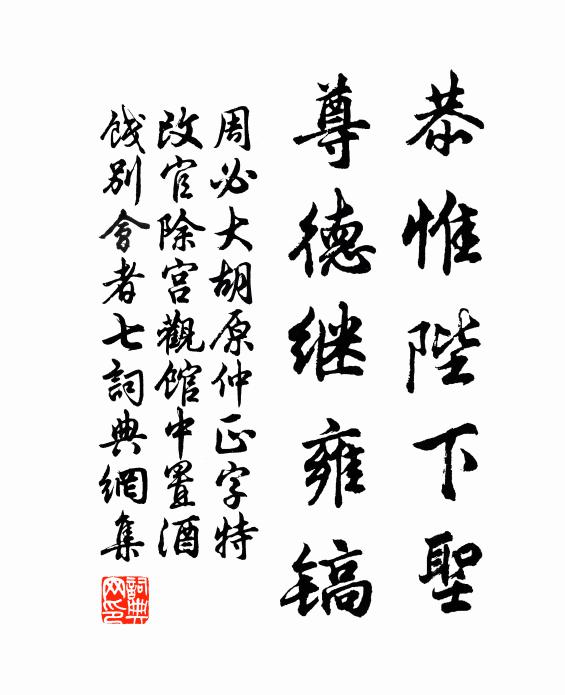 恭惟陛下聖
尊德继雍镐
周必大胡原仲正字特
改官除宫觀館中置酒
餞別會者七詞典網集
詞典网印